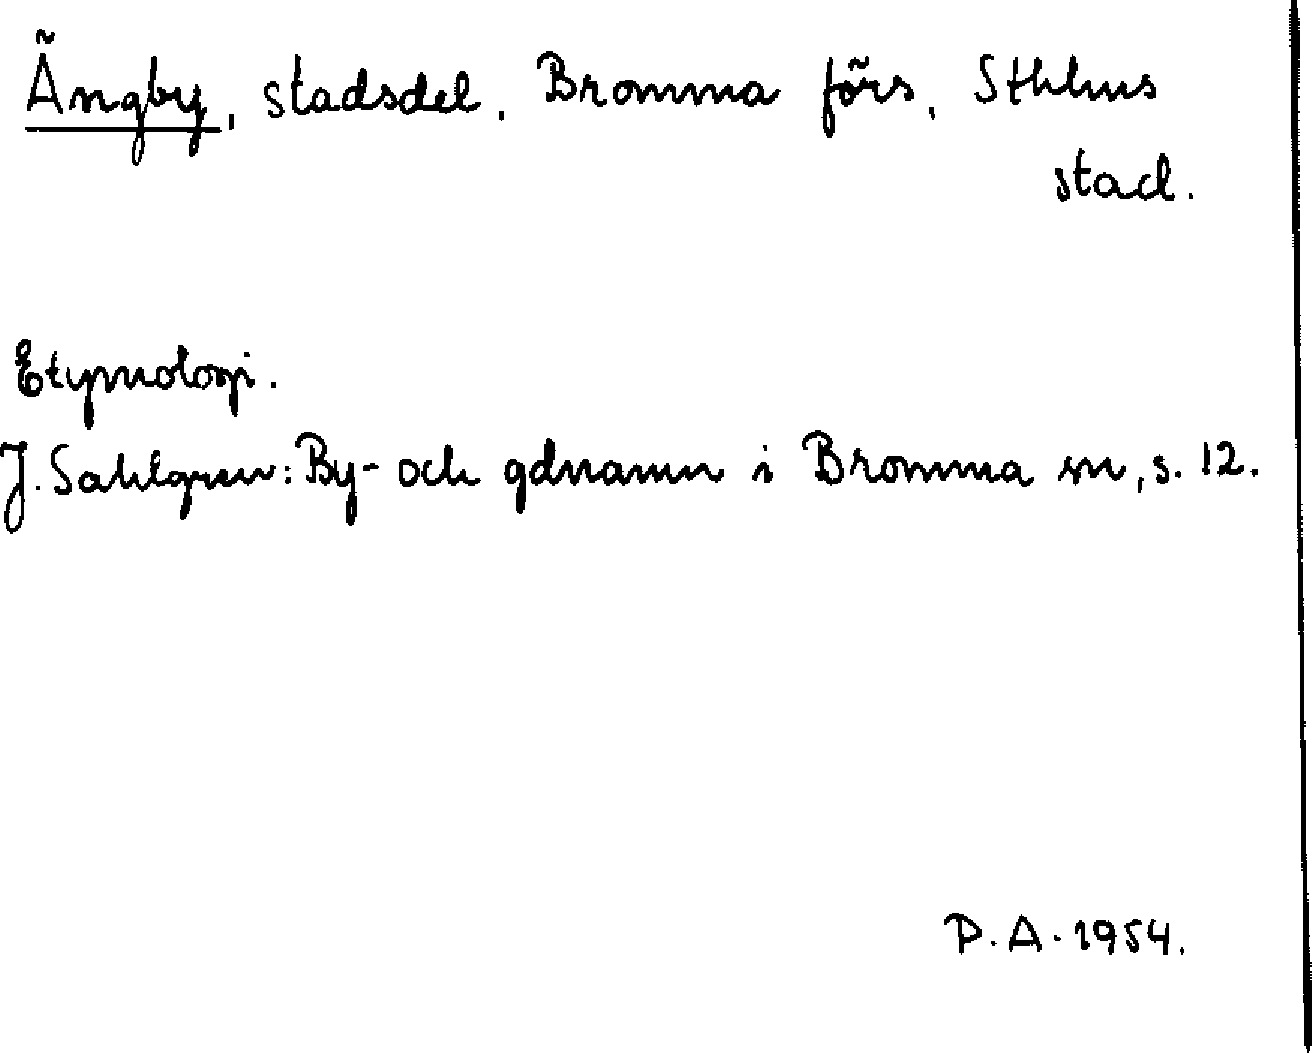 Ängby, stadsdel, Bromma förs, Sthlms
stad.
Etymologi.
J. Sahlgren: By- och gdnamn i Bromma sn, s. 12.
P. A. 1954.